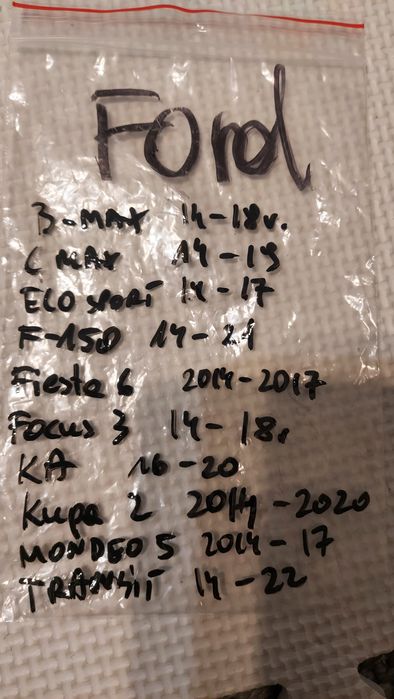 Ford
B-MAX 14-18r.
C MAX 14-19
ECO SPORT 14-17
F-150 14-21
Fiesta 6 2014-2017
Focus 3 14-18r
KA 16-20
Kupa 2 2014-2020
MONDEO 5 2014-17
TRANSIT 14-22